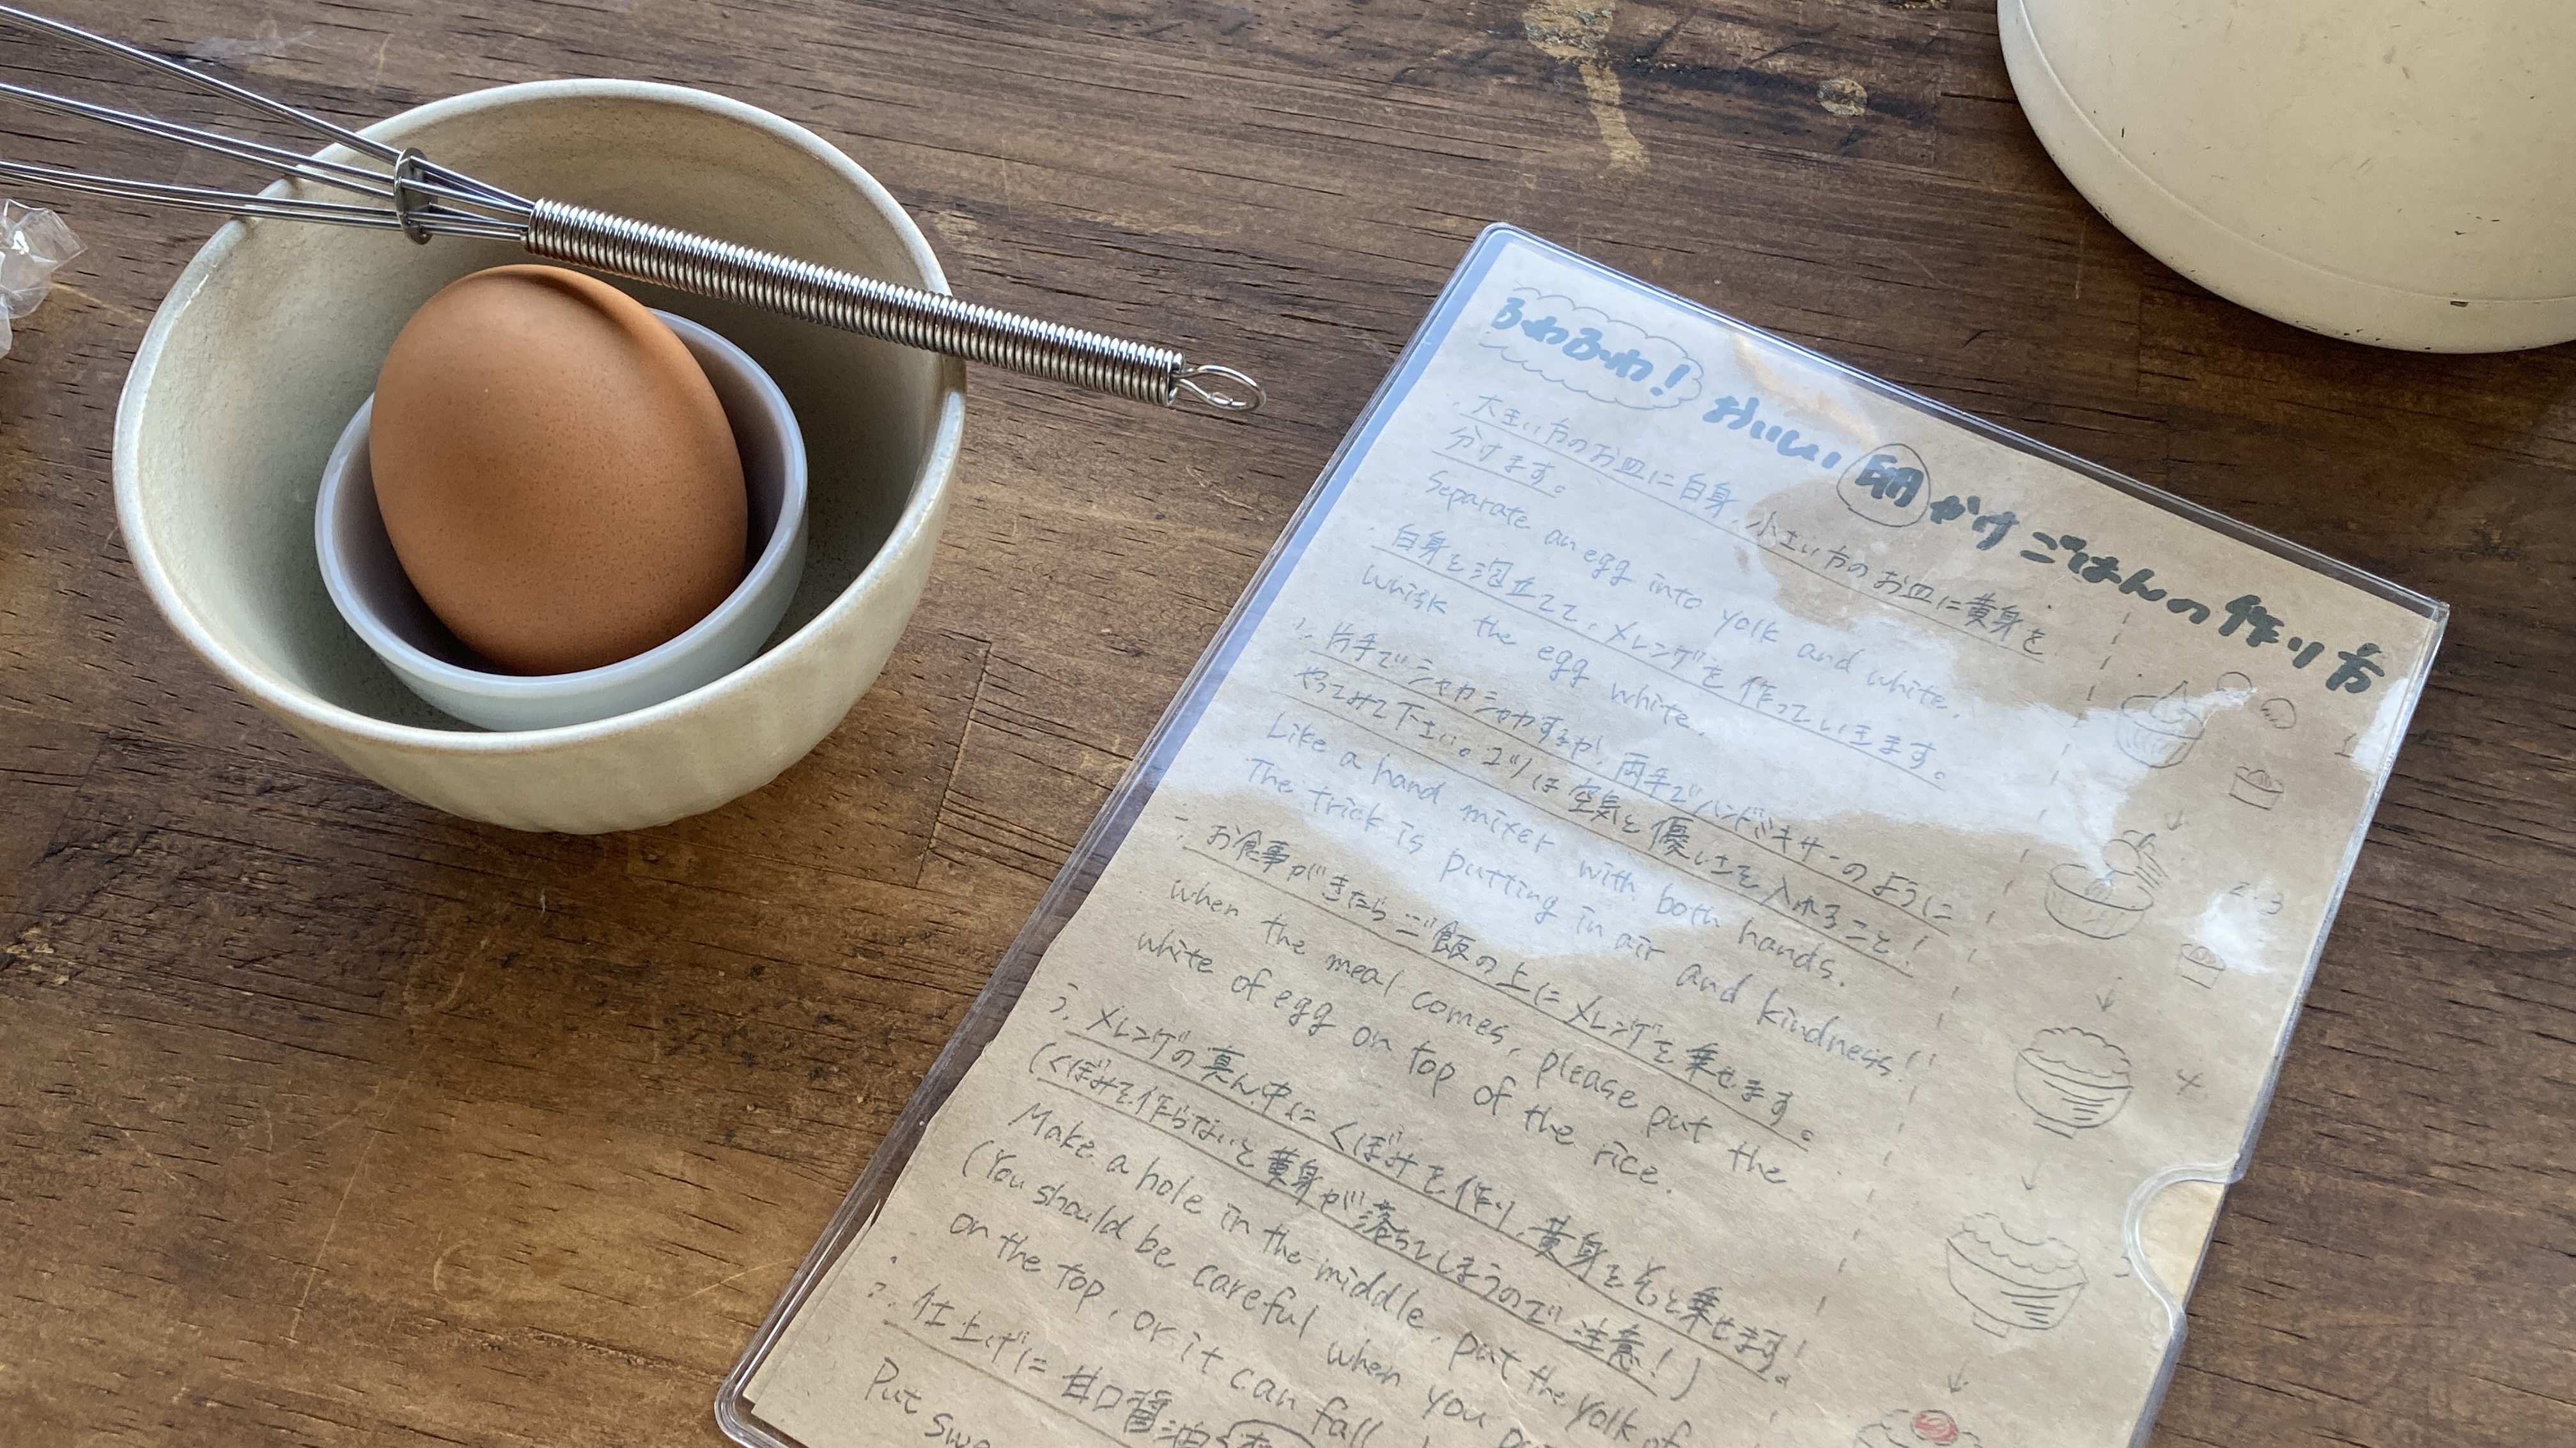 ふわふわ! おいしい 卵 かけ ごはんの 作り方
大きい方のお皿に白身、小さい方のお皿に黄身を
分けます。
Separate an egg into yolk and white.
白身を泡立てて、メレンゲを作っていきます。
Whisk the egg white.
片手でシャカシャカするか、両手でハンドミキサーのように
やってみて下さい。コツは空気と優しさを入れること!
Like a hand mixer with both hands.
The trick is putting in air and kindness!
お食事がきたらご飯の上にメレンゲを乗せます。
When the meal comes, please put the
white of egg on top of the rice.
メレンゲの真ん中にくぼみを作り、黄身をそっと乗せます。
(くぼみを作らないと黄身が落ちてしまうので注意!)
Make a hole in the middle, put the yolk of
(You should be careful when you
on the top, or it can fall
仕上げに 甘口醤油
Put
1
2.3
4